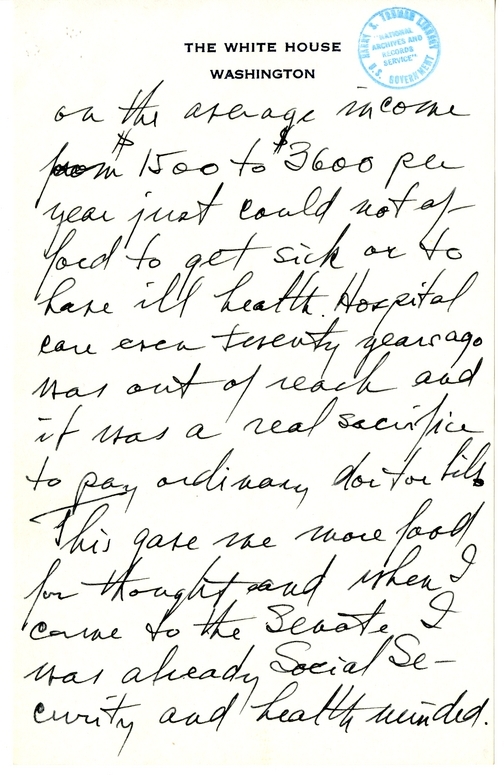 THE WHITE HOUSE
WASHINGTON
HARRY S. TRUMAN LIBRARY
"NATIONAL
ARCHIVES AND
RECORDS
SERVICE"
U.S. GOVERNMENT
on the average income
from $1500 to $3600 per
year just could not af-
ford to get sick or to
have ill health. Hospital
care even twenty years ago
was out of reach and
it was a real sacrifice
to pay ordinary doctor bills.
This gave me more food
for thought and when I
came to the Senate I
was already Social Se-
curity and health minded.